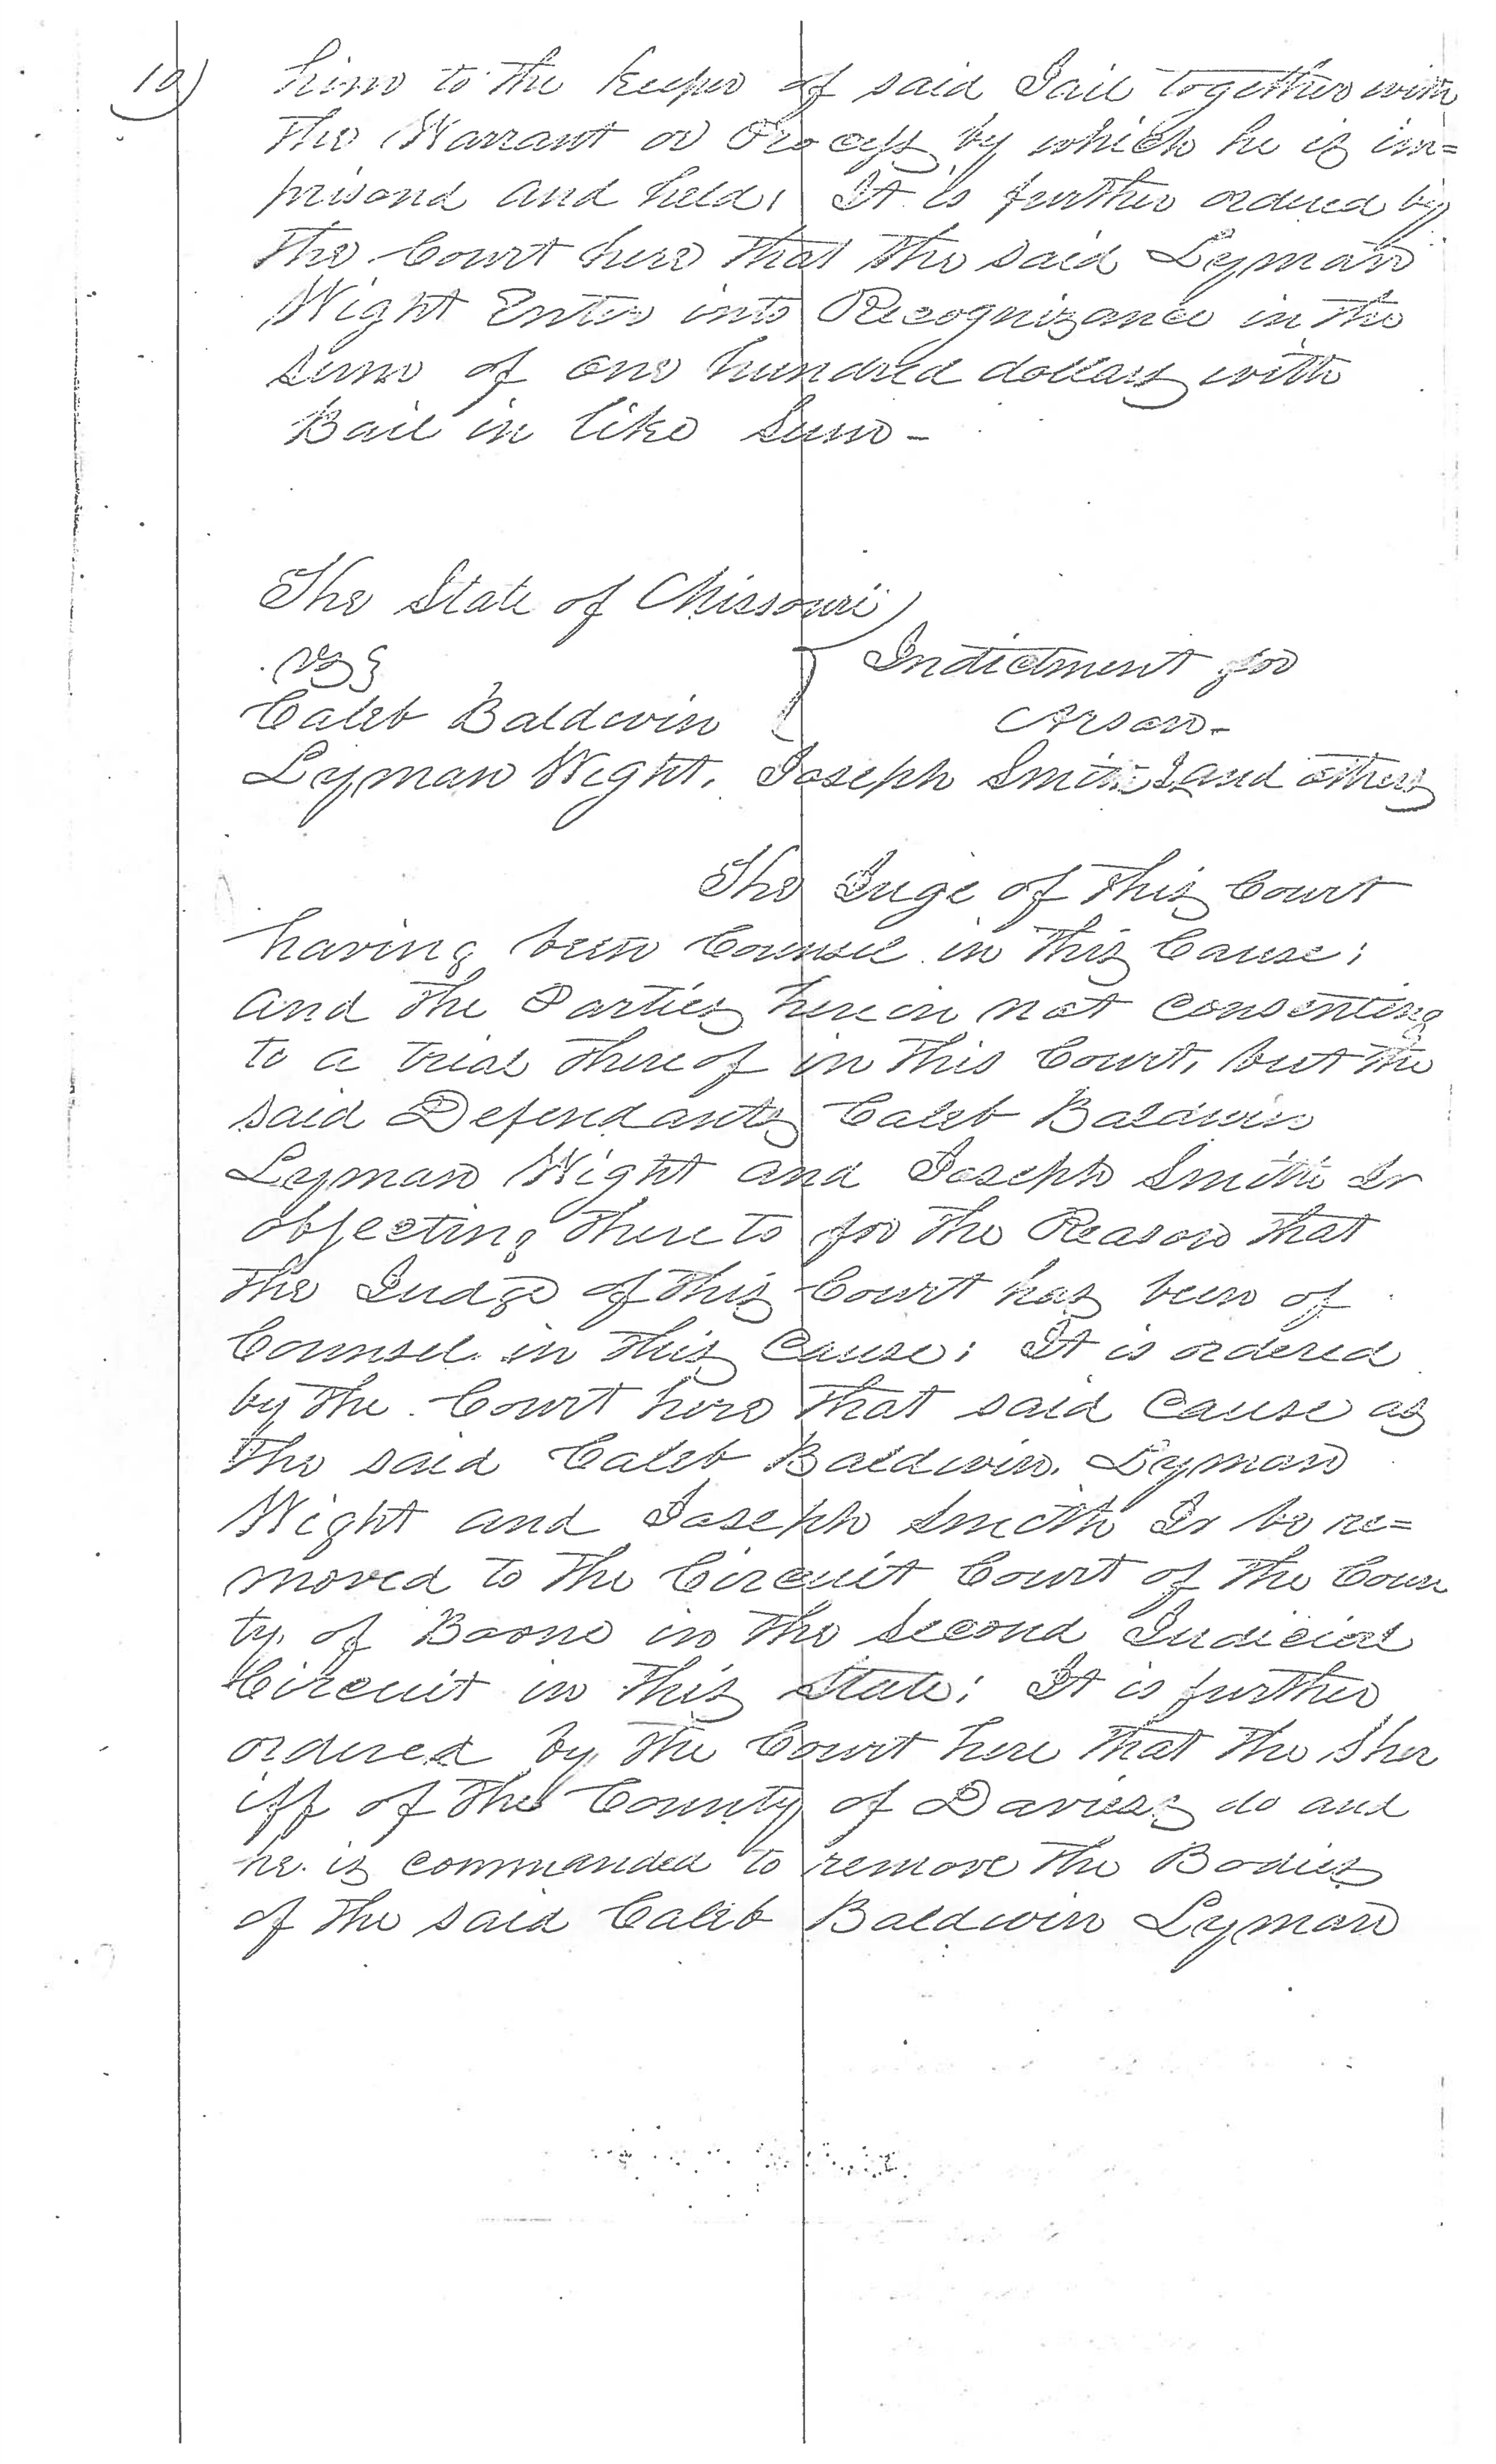 10) him to the keeper of said Jail together with
the Warrant or Process by which he is im=
prisond and held, It is further ordered by
the Court here that the said Lyman
Wight Enter into Recognizance in the
sum of one hundred dollars with
Bail in like Sum -
The State of Missouri
vs
Indictment for
Caleb Baldwin
Arson -
Lyman Wight, Joseph Smith Jr and others
The Juge of this Court
having been Counsel in this Cause;
and the Parties herein not consenting
to a trial thereof in this Court, but the
said Defendants Caleb Baldwin
Lyman Wight and Joseph Smith Jr
objecting thereto for the Reason that
the Judge of this Court has been of
Counsel in this Cause; It is ordered
by the Court here that said Cause as
the said Caleb Baldwin, Lyman
Wight and Joseph Smith Jr be re=
moved to the Circuit Court of the Coun
ty of Boone in the Second Judicial
Circuit in this State; It is further
ordered by the Court here that the Sher
iff of the County of Daviess do and
he is commanded to remove the Bodies
of the said Caleb Baldwin Lyman